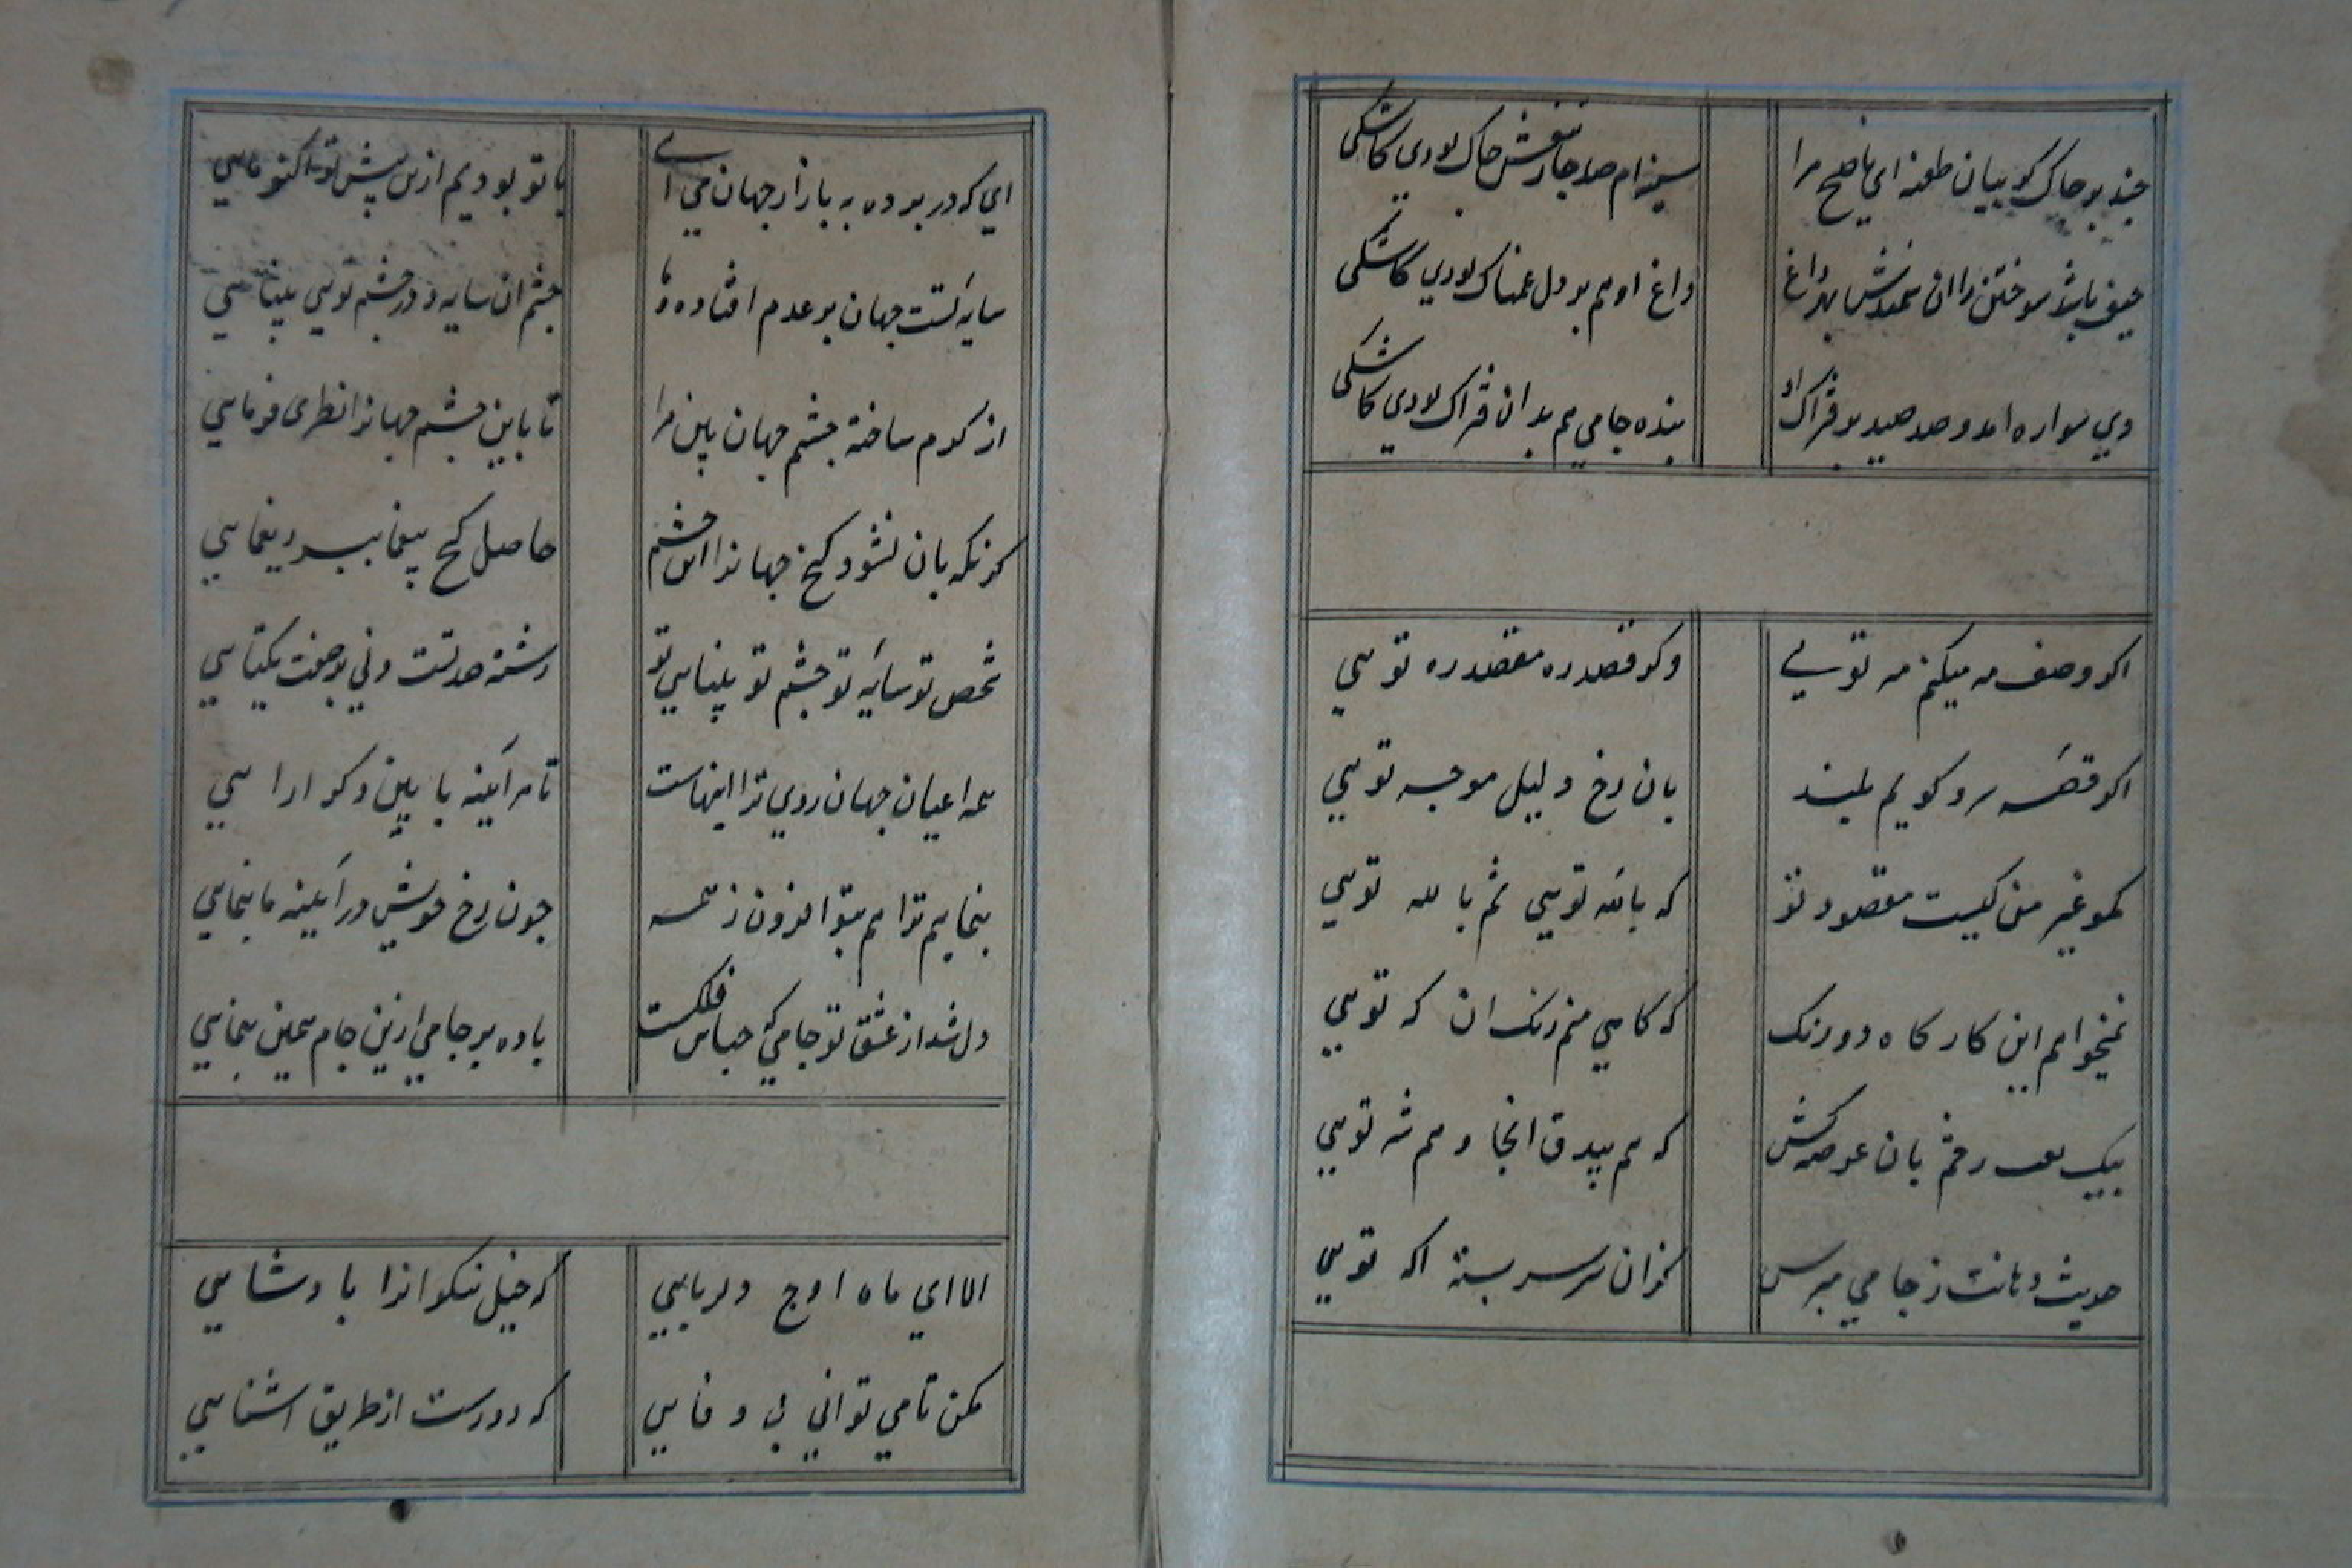 چند بر چاک گریبان طعنه ای ناصح مرا
سینه ام صد جا ز تیغش چاک بودی کاشکی
حیف باشد سوختن را ان سمندش بهر داغ
داغ او هم بر دل غمناک بودی کاشکی
دی سواره امد و صد صید بر فتراک او
بنده جامی هم بدان فتراک بودی کاشکی
اکر وصف مه میکنم مه تویی
وکر قصد ره مقصد ره تویی
اکر قصه سرو کویم بلند
بان رخ دلیل موجه تویی
مکو غیر من کیست مقصود تو
که بالله تویی ثم بالله تویی
نمیخواهم این کارکاه دو رنک
که کاهی منم زنک ان که تویی
بیک لعب رفتم بان عرصه کش
که هم بیدق انجا و هم شه تویی
حدیث دهانت ز جامی مپرس
کزان سر سربسته اکه تویی
ای که در پرده به بازار جهان می ایی
با تو بودیم ازین پیش تو اکنون مایی
سایه تست جهان بر عدم افتاده و ما
چشم ان سایه و در چشم تویی بینایی
از کرم ساخته چشم جهان بین مرا
تا باین چشم جهانرا نظری فرمایی
کرنکهبان نشود کنج جهانرا این چشم
حاصل کنج بیغما ببرد یغمایی
شخص تو سایه تو چشم تو بینایی تو
رشته صد تست ولی بر صفت یکتایی
همه اعیان جهان روی ترا اینهاست
تا هر آینه بابین دکر ارایی
بنماییم ترا هم بتو افزون ز همه
چون رخ خویش در آیینه ما بنمایی
دل شد از عشق تو جامی که حبابش فلکست
باده بر جامی ازین جام همین پیمایی
الا ای ماه اوج دلربایی
که خیل نیکوانرا پادشایی
مکن تا می توانی بی وفایی
که دورست از طریق اشنایی